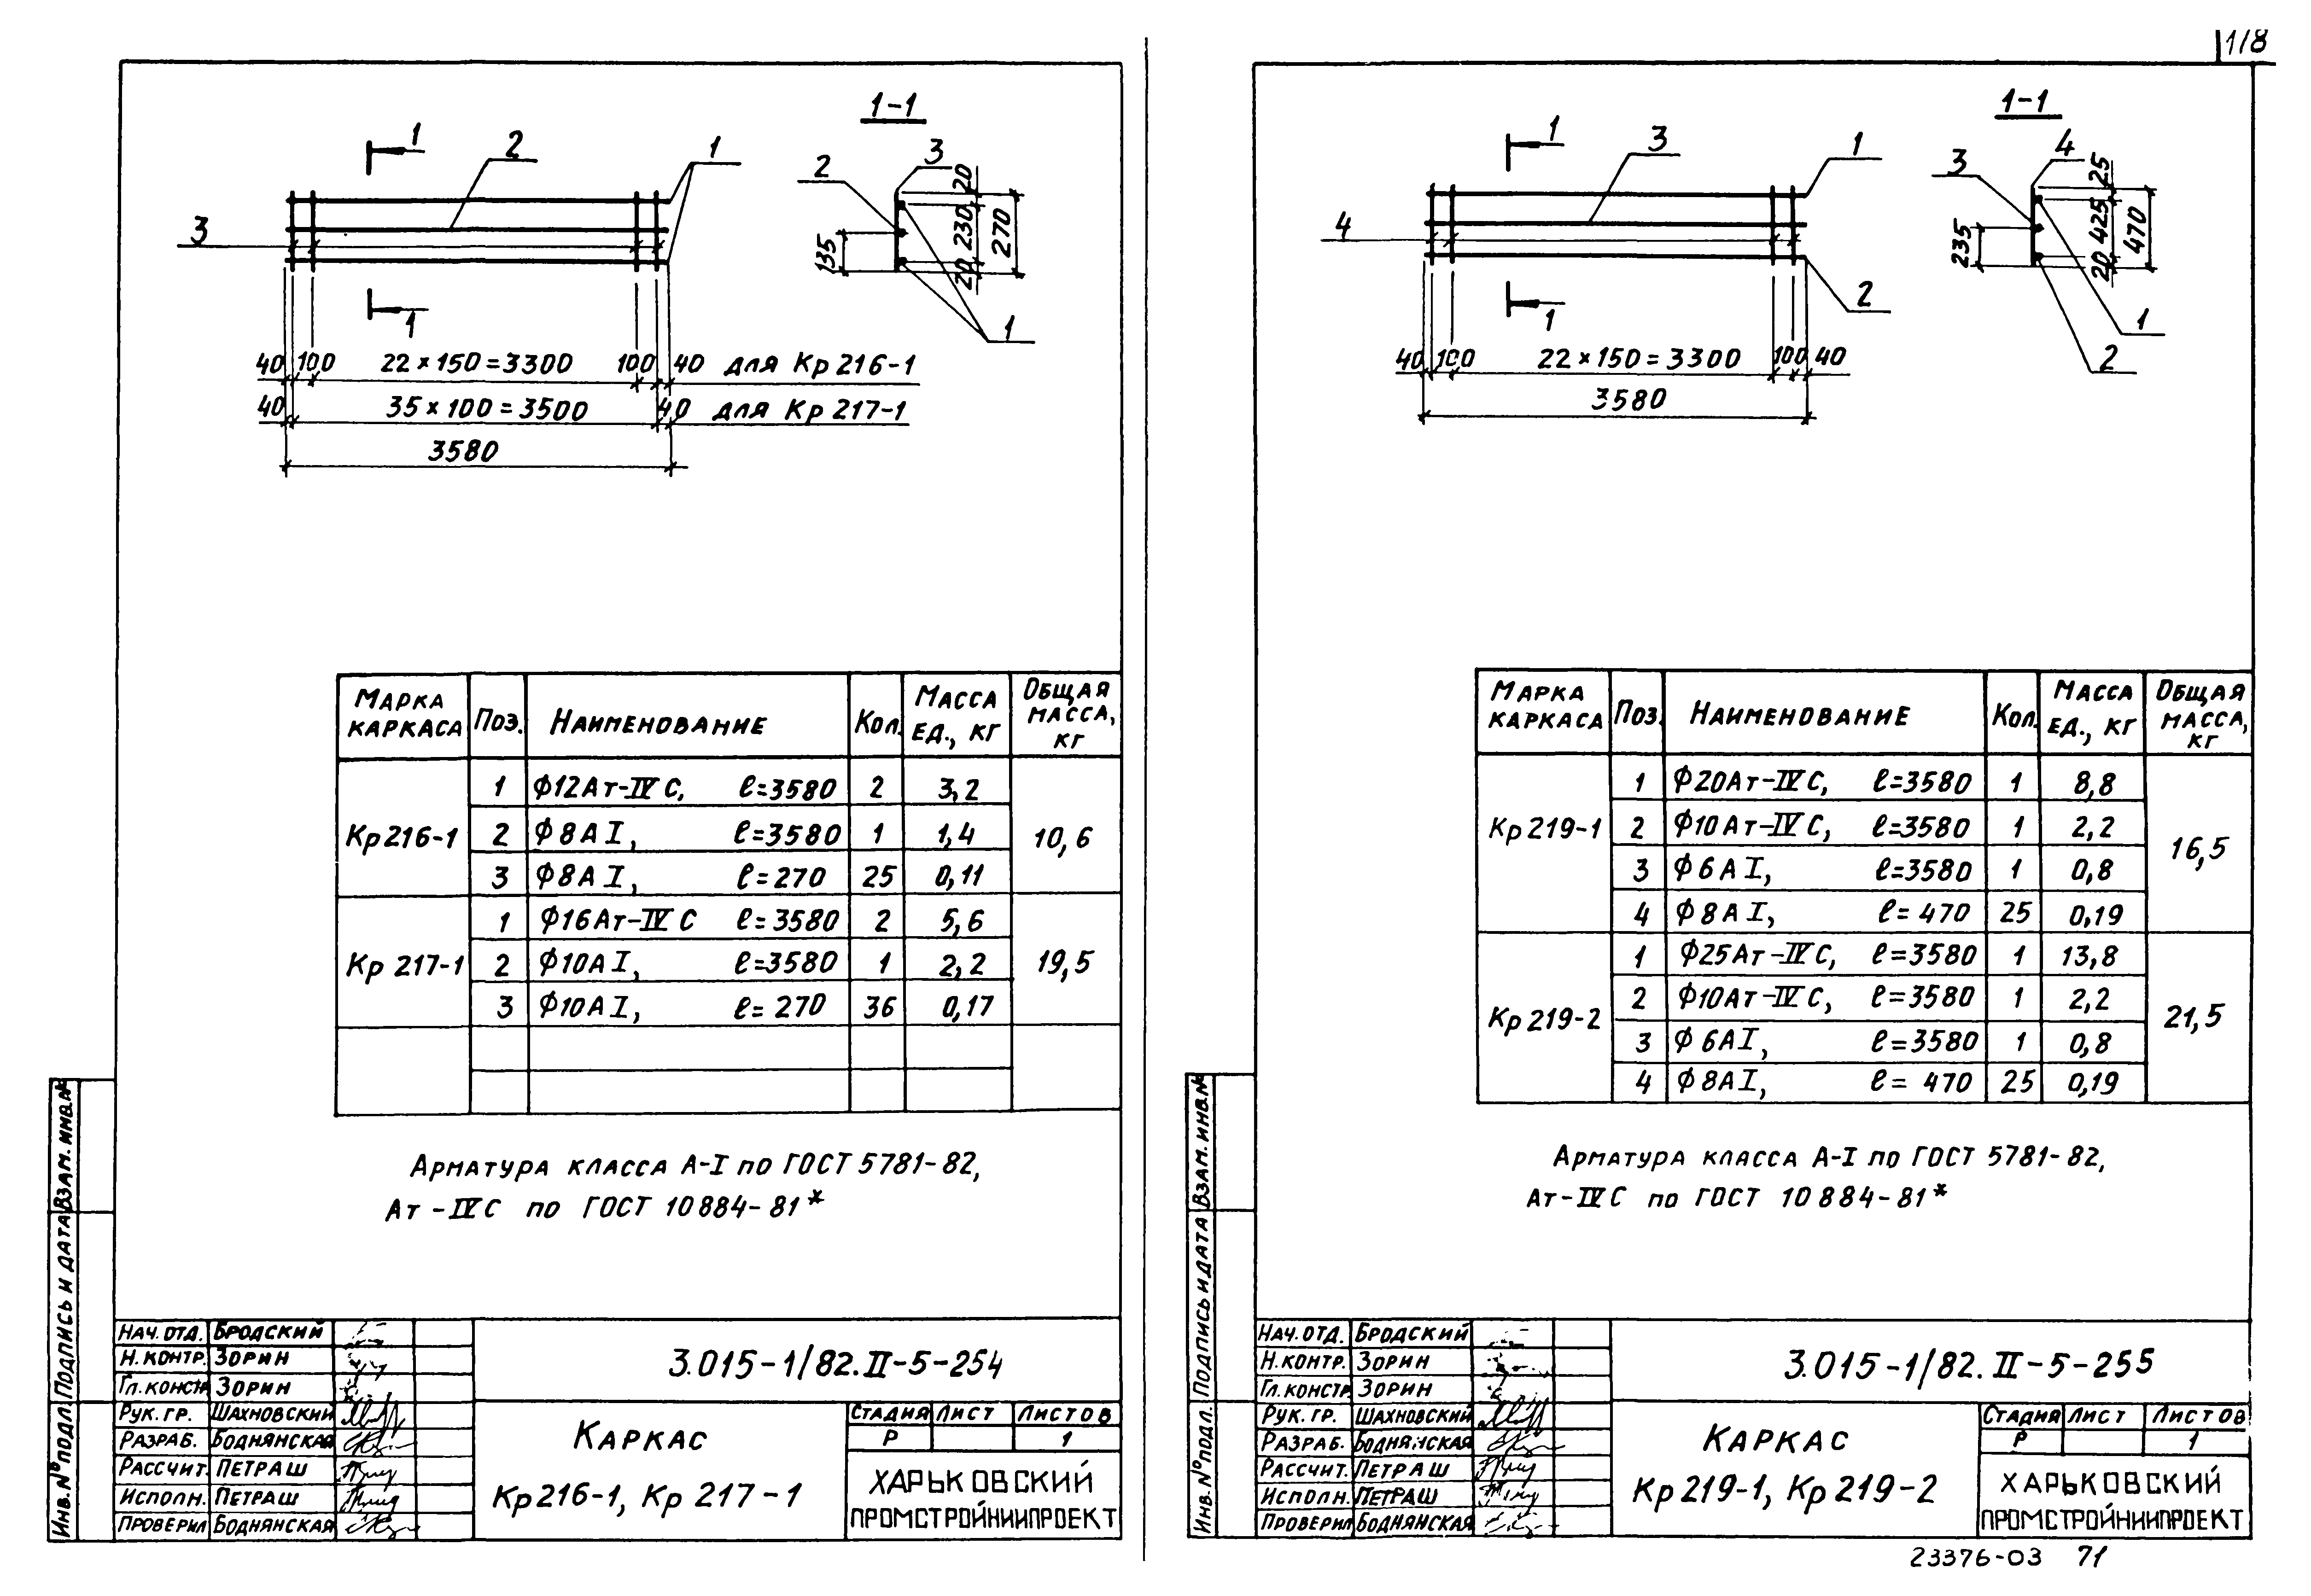 118
1-1
1
2
1
2
3
20
3
230
270
135
20
1
1
40 100 22×150=3300 100 40 для Кр 216-1
40 35×100=3500 40 для Кр 217-1
3580
Марка каркаса Поз. Наименование Кол. Масса ед., кг Общая масса, кг
Кр 216-1 1 Ф12Ат-IVС, ℓ=3580 2 3,2 10,6
2 Ф8АI, ℓ=3580 1 1,4
3 Ф8АI, ℓ=270 25 0,11
Кр 217-1 1 Ф16Ат-IVС ℓ=3580 2 5,6 19,5
2 Ф10АI, ℓ=3580 1 2,2
3 Ф10АI, ℓ=270 36 0,17
Арматура класса А-I по ГОСТ 5781-82,
Ат-IVС по ГОСТ 10884-81*
Взам. инв.№
Подпись и дата
Инв.№ подл.
Нач. отд. Бродский
Н. контр. Зорин
Гл. констр. Зорин
Рук. гр. Шахновский
Разраб. Боднянская
Рассчит. Петраш
Исполн. Петраш
Проверил Боднянская
3.015-1/82.II-5-254
Каркас
Кр 216-1, Кр 217-1
Стадия Лист Листов
Р 1
ХАРЬКОВСКИЙ
ПРОМСТРОЙНИИПРОЕКТ
1-1
1
3
1
4
25
3
4
425
470
235
20
1
2
1
2
40 100 22×150=3300 100 40
3580
Марка каркаса Поз. Наименование Кол. Масса ед., кг Общая масса, кг
Кр 219-1 1 Ф20Ат-IVС, ℓ=3580 1 8,8 16,5
2 Ф10Ат-IVС, ℓ=3580 1 2,2
3 Ф6АI, ℓ=3580 1 0,8
4 Ф8АI, ℓ=470 25 0,19
Кр 219-2 1 Ф25Ат-IVС, ℓ=3580 1 13,8 21,5
2 Ф10Ат-IVС, ℓ=3580 1 2,2
3 Ф6АI, ℓ=3580 1 0,8
4 Ф8АI, ℓ=470 25 0,19
Арматура класса А-I по ГОСТ 5781-82,
Ат-IVС по ГОСТ 10884-81*
Взам. инв.№
Подпись и дата
Инв.№ подл.
Нач. отд. Бродский
Н. контр. Зорин
Гл. констр. Зорин
Рук. гр. Шахновский
Разраб. Боднянская
Рассчит. Петраш
Исполн. Петраш
Проверил Боднянская
3.015-1/82.II-5-255
Каркас
Кр 219-1, Кр 219-2
Стадия Лист Листов
Р 1
ХАРЬКОВСКИЙ
ПРОМСТРОЙНИИПРОЕКТ
23376-03 71